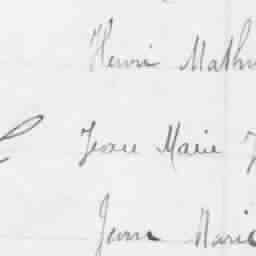 Henri Mathu
Jeanne Marie J
Jean Marie